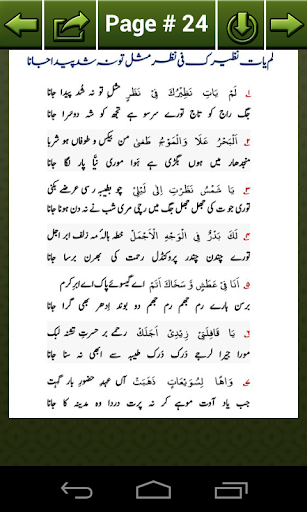 Page # 24
لم یات نظیرک فی نظر مثل تو نہ شد پیدا جانا
۱۔ لَمْ یَاتِ نَظِیْرُکَ فِیْ نَظَرٍ مثلِ تو نہ شُد پیدا جانا
جگ راج کو تاج تورے سر سو ہے تجھ کو شہ دوسَرا جانا
۲۔ اَلْبَحْرُ عَلَا وَالْمَوْجُ طَغٰی من بیکس و طوفاں ہوشربا
منجدھار میں ہوں بگڑی ہے ہوا موری نَیّا پار لگا جانا
۳۔ یَا شَمْسُ نَظَرْتِ اِلٰی لَیْلِیْ چو بطیبہ رسی عرضے بکنی
توری جوت کی جھل جھل جگ میں رچی مری شب نے نہ دن ہونا جانا
۴۔ لَکَ بَدْرٌ فِی الْوَجْہِ الْاَجْمَلْ خطہ ہالۂ مہ زلف ابرِ اجل
تورے چندن چندر پروکنڈل رحمت کی بھرن برسا جانا
۵۔ اَنَا فِیْ عَطَشٍ وَّ سَخَاکَ اَتَمْ اے گیسوئے پاک اے ابرِ کرم
برسن ہارے رم جھم رم جھم دو بوند اِدھر بھی گرا جانا
۶۔ یَا قَافِلَتِیْ زِیْدِیْ اَجَلَکْ رحمے بر حسرتِ تشنہ لبک
مورا جَیرا لرجے دَرَک دَرَک طیبہ سے ابھی نہ سنا جانا
۷۔ وَاھًا لِّسُوَیْعَاتٍ ذَھَبَتْ آں عہدِ حضورِ بار گہت
جب یاد آوت موہے کر نہ پرت دردا وہ مدینہ کا جانا